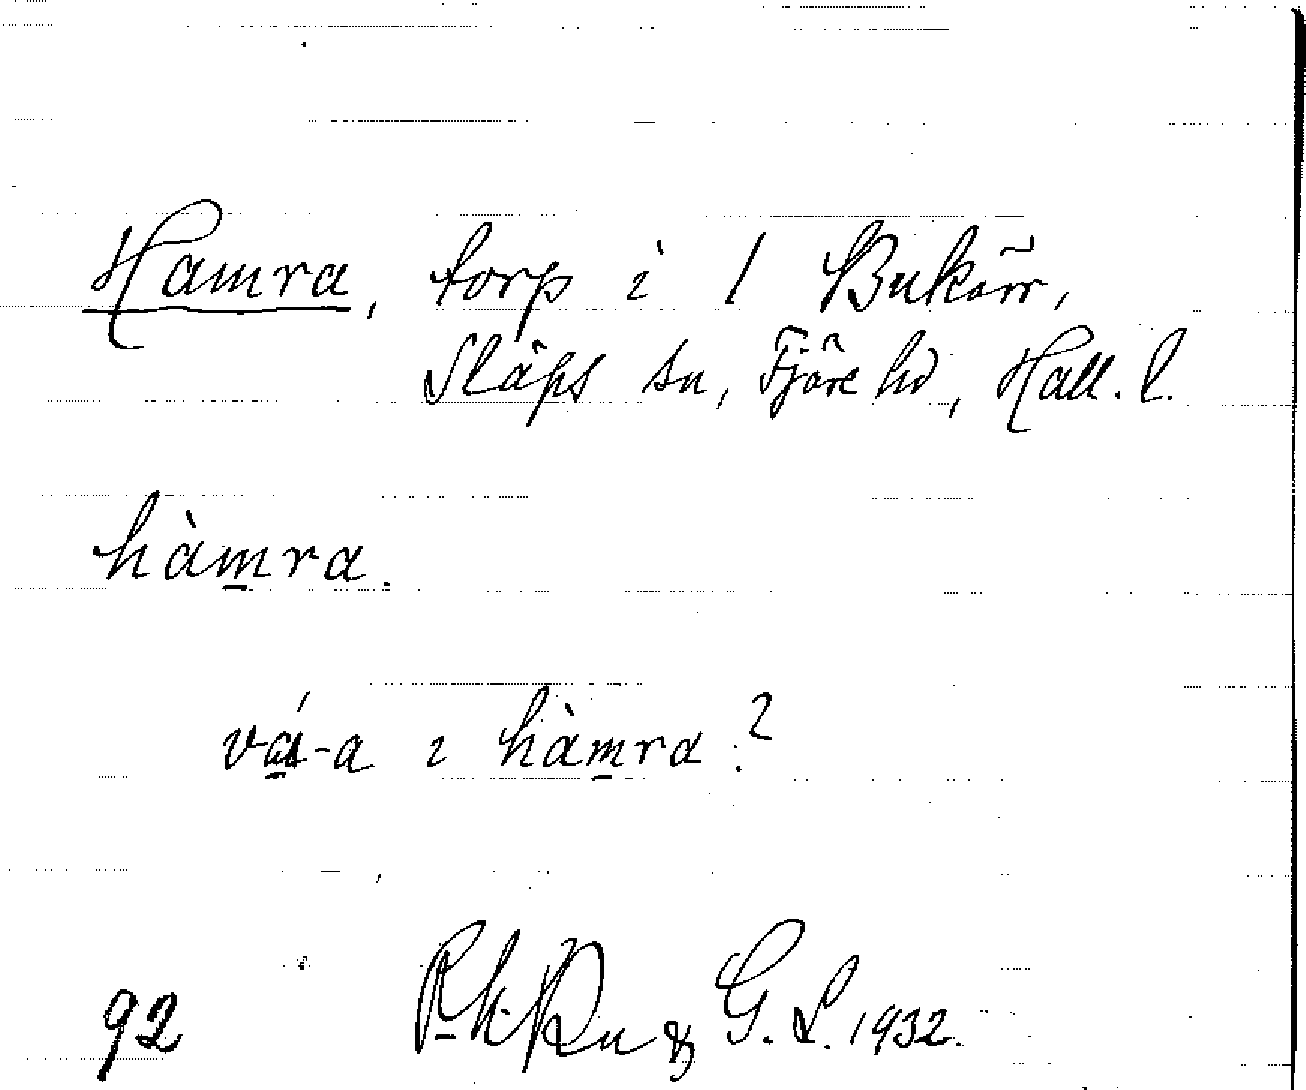 Hamra, torp i 1 Bukärr,
Släps sn, Fjäre hd, Hall. l.
hàmra.
vá-a i hàmra?
92 & G. L. 1932.